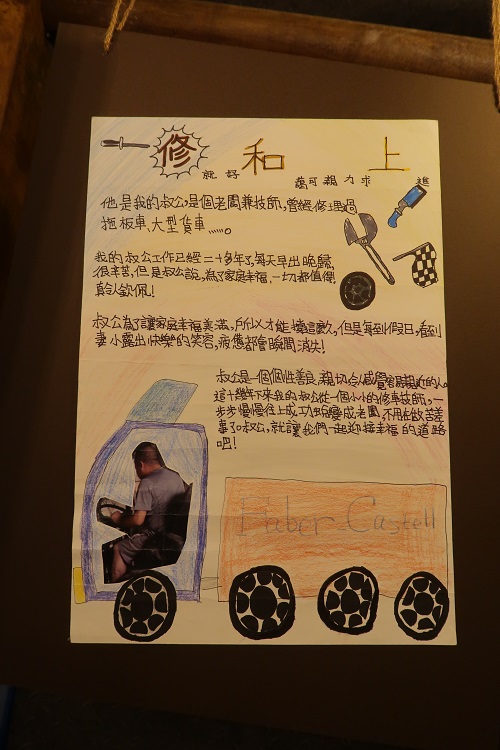 一修就好 和萬可親 力求上進
他是我的叔公,是個老闆兼技師,曾經修理過
拖板車、大型貨車......。
我的叔公工作已經二十多年了,每天早出晚歸,
很辛苦,但是叔公說,為了家庭幸福,一切都值得,
真令人欽佩!
叔公為了讓家庭幸福美滿,所以才能撐這麼久,但是每到假日,看到
妻小露出快樂的笑容,疲憊都會瞬間消失!
叔公是一個個性善良、親切令人感覺容易親近的人。
這十幾年下來我的叔公從一個小小的修車技師,一
步步慢慢往上成功蛻變成老闆,不用在做苦差
事了叔公,就讓我們一起迎接幸福的道路
吧!
Faber-Castell